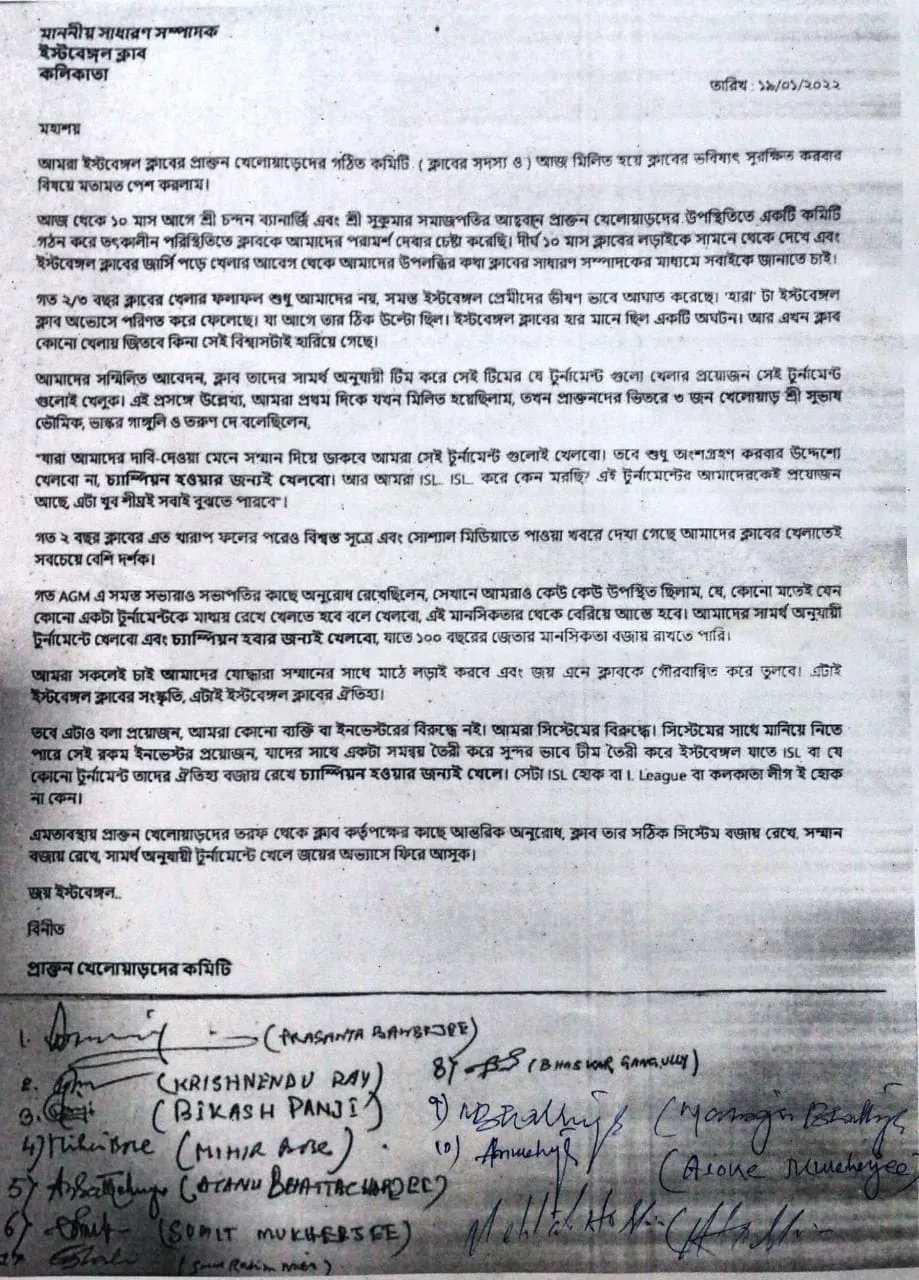 মাননীয় সাধারণ সম্পাদক
ইস্টবেঙ্গল ক্লাব
কলিকাতা
তারিখ : ১৯/০১/২০২২
মহাশয়
আমরা ইস্টবেঙ্গল ক্লাবের প্রাক্তন খেলোয়াড়েদের গঠিত কমিটি ( ক্লাবের সদস্য ও ) আজ মিলিত হয়ে ক্লাবের ভবিষ্যৎ সুরক্ষিত করবার
বিষয়ে মতামত পেশ করলাম।
আজ থেকে ১০ মাস আগে শ্রী চন্দন ব্যানার্জি এবং শ্রী সুকুমার সমাজপতির আহবান প্রাক্তন খেলোয়াড়দের উপস্থিতিতে একটি কমিটি
গঠন করে তৎকালীন পরিস্থিতিতে ক্লাবকে আমাদের পরামর্শ দেবার চেষ্টা করেছি। দীর্ঘ ১০ মাস ক্লাবের লড়াইকে সামনে থেকে দেখে এবং
ইস্টবেঙ্গল ক্লাবের জার্সি পড়ে খেলার আবেগ থেকে আমাদের উপলব্ধির কথা ক্লাবের সাধারণ সম্পাদকের মাধ্যমে সবাইকে জানাতে চাই।
গত ২/৩ বছর ক্লাবের খেলার ফলাফল শুধু আমাদের নয়, সমস্ত ইস্টবেঙ্গল প্রেমীদের ভীষণ ভাবে আঘাত করেছে। 'হারা' টা ইস্টবেঙ্গল
ক্লাব অভ্যেসে পরিণত করে ফেলেছে। যা আগে তার ঠিক উল্টো ছিল। ইস্টবেঙ্গল ক্লাবের হার মানে ছিল একটি অঘটন। আর এখন ক্লাব
কোনো খেলায় জিতবে কিনা সেই বিশ্বাসটাই হারিয়ে গেছে।
আমাদের সম্মিলিত আবেদন, ক্লাব তাদের সামর্থ অনুযায়ী টিম করে সেই টিমের যে টুর্নামেন্ট গুলো খেলার প্রয়োজন সেই টুর্নামেন্ট
গুলোই খেলুক। এই প্রসঙ্গে উল্লেখ্য, আমরা প্রথম দিকে যখন মিলিত হয়েছিলাম, তখন প্রাক্তনদের ভিতরে ৩ জন খেলোয়াড় শ্রী সুভাষ
ভৌমিক, ভাস্কর গাঙ্গুলি ও তরুণ দে বলেছিলেন,
"যারা আমাদের দাবি-দেওয়া মেনে সম্মান দিয়ে ডাকবে আমরা সেই টুর্নামেন্ট গুলোই খেলবো। তবে শুধু অংশগ্রহণ করবার উদ্দেশ্যে
খেলবো না, চ্যাম্পিয়ন হওয়ার জন্যই খেলবো। আর আমরা ISL.. ISL.. করে কেন মরছি? এই টুর্নামেন্টের আমাদেরকেই প্রয়োজন
আছে, এটা খুব শীঘ্রই সবাই বুঝতে পারবে"।
গত ২ বছর ক্লাবের এত খারাপ ফলের পরেও বিশ্বস্ত সূত্রে এবং সোশ্যাল মিডিয়াতে পাওয়া খবরে দেখা গেছে আমাদের ক্লাবের খেলাতেই
সবচেয়ে বেশি দর্শক।
গত AGM এ সমস্ত সভ্যরাও সভাপতির কাছে অনুরোধ রেখেছিলেন, সেখানে আমরাও কেউ কেউ উপস্থিত ছিলাম, যে, কোনো মতেই যেন
কোনো একটা টুর্নামেন্টকে মাথায় রেখে খেলতে হবে বলে খেলবো, এই মানসিকতার থেকে বেরিয়ে আস্তে হবে। আমাদের সামর্থ অনুযায়ী
টুর্নামেন্টে খেলবো এবং চ্যাম্পিয়ন হবার জন্যই খেলবো, যাতে ১০০ বছরের জেতার মানসিকতা বজায় রাখতে পারি।
আমরা সকলেই চাই আমাদের যোদ্ধারা সম্মানের সাথে মাঠে লড়াই করবে এবং জয় এনে ক্লাবকে গৌরবান্বিত করে তুলবে। এটাই
ইস্টবেঙ্গল ক্লাবের সংস্কৃতি, এটাই ইস্টবেঙ্গল ক্লাবের ঐতিহ্য।
তবে এটাও বলা প্রয়োজন, আমরা কোনো ব্যক্তি বা ইনভেস্টরের বিরুদ্ধে নই। আমরা সিস্টেমের বিরুদ্ধে। সিস্টেমের সাথে মানিয়ে নিতে
পারে সেই রকম ইনভেস্টর প্রয়োজন, যাদের সাথে একটা সমন্বয় তৈরী করে সুন্দর ভাবে টীম তৈরী করে ইস্টবেঙ্গল যাতে ISL বা যে
কোনো টুর্নামেন্ট তাদের ঐতিহ্য বজায় রেখে চ্যাম্পিয়ন হওয়ার জন্যই খেলে। সেটা ISL হোক বা I. League বা কলকাতা লীগ ই হোক
না কেন।
এমতাবস্থায় প্রাক্তন খেলোয়াড়দের তরফ থেকে ক্লাব কর্তৃপক্ষের কাছে আন্তরিক অনুরোধ, ক্লাব তার সঠিক সিস্টেম বজায় রেখে, সম্মান
বজায় রেখে, সামর্থ অনুযায়ী টুর্নামেন্টে খেলে জয়ের অভ্যাসে ফিরে আসুক।
জয় ইস্টবেঙ্গল..
বিনীত
প্রাক্তন খেলোয়াড়দের কমিটি
1. (PRASANTA BANERJEE)
2. (KRISHNENDU RAY)
3. (BIKASH PANJI)
4) Mihir Bose (MIHIR BOSE)
5) (ATANU BHATTACHARJEE)
6) (SUMIT MUKHERJEE)
8) (BHASKAR GANGULY)
9)
10) (Alok Mukherjee)